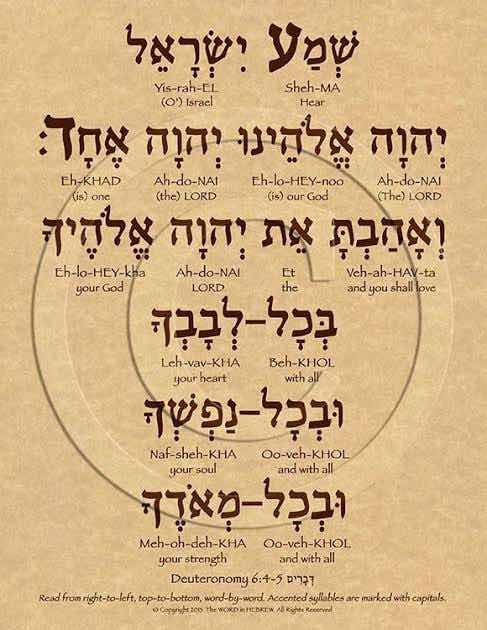 שְׁמַע יִשְׂרָאֵל
Yis-rah-EL Sheh-MA
(O') Israel Hear
יְהוָה אֱלֹהֵינוּ יְהוָה אֶחָד׃
Eh-KHAD Ah-do-NAI Eh-lo-HEY-noo Ah-do-NAI
(is) one (the) LORD (is) our God (The) LORD
וְאָהַבְתָּ אֵת יְהוָה אֱלֹהֶיךָ
Eh-lo-HEY-kha Ah-do-NAI Et Veh-ah-HAV-ta
your God LORD the and you shall love
בְּכָל־לְבָבְךָ
Leh-vav-KHA Beh-KHOL
your heart with all
וּבְכָל־נַפְשְׁךָ
Naf-sheh-KHA Oo-veh-KHOL
your soul and with all
וּבְכָל־מְאֹדֶךָ
Meh-oh-deh-KHA Oo-veh-KHOL
your strength and with all
Deuteronomy 6:4-5 דְּבָרִים
Read from right-to-left, top-to-bottom, word-by-word. Accented syllables are marked with capitals.
© Copyright 2015 The WORD in HEBREW. All Rights Reserved